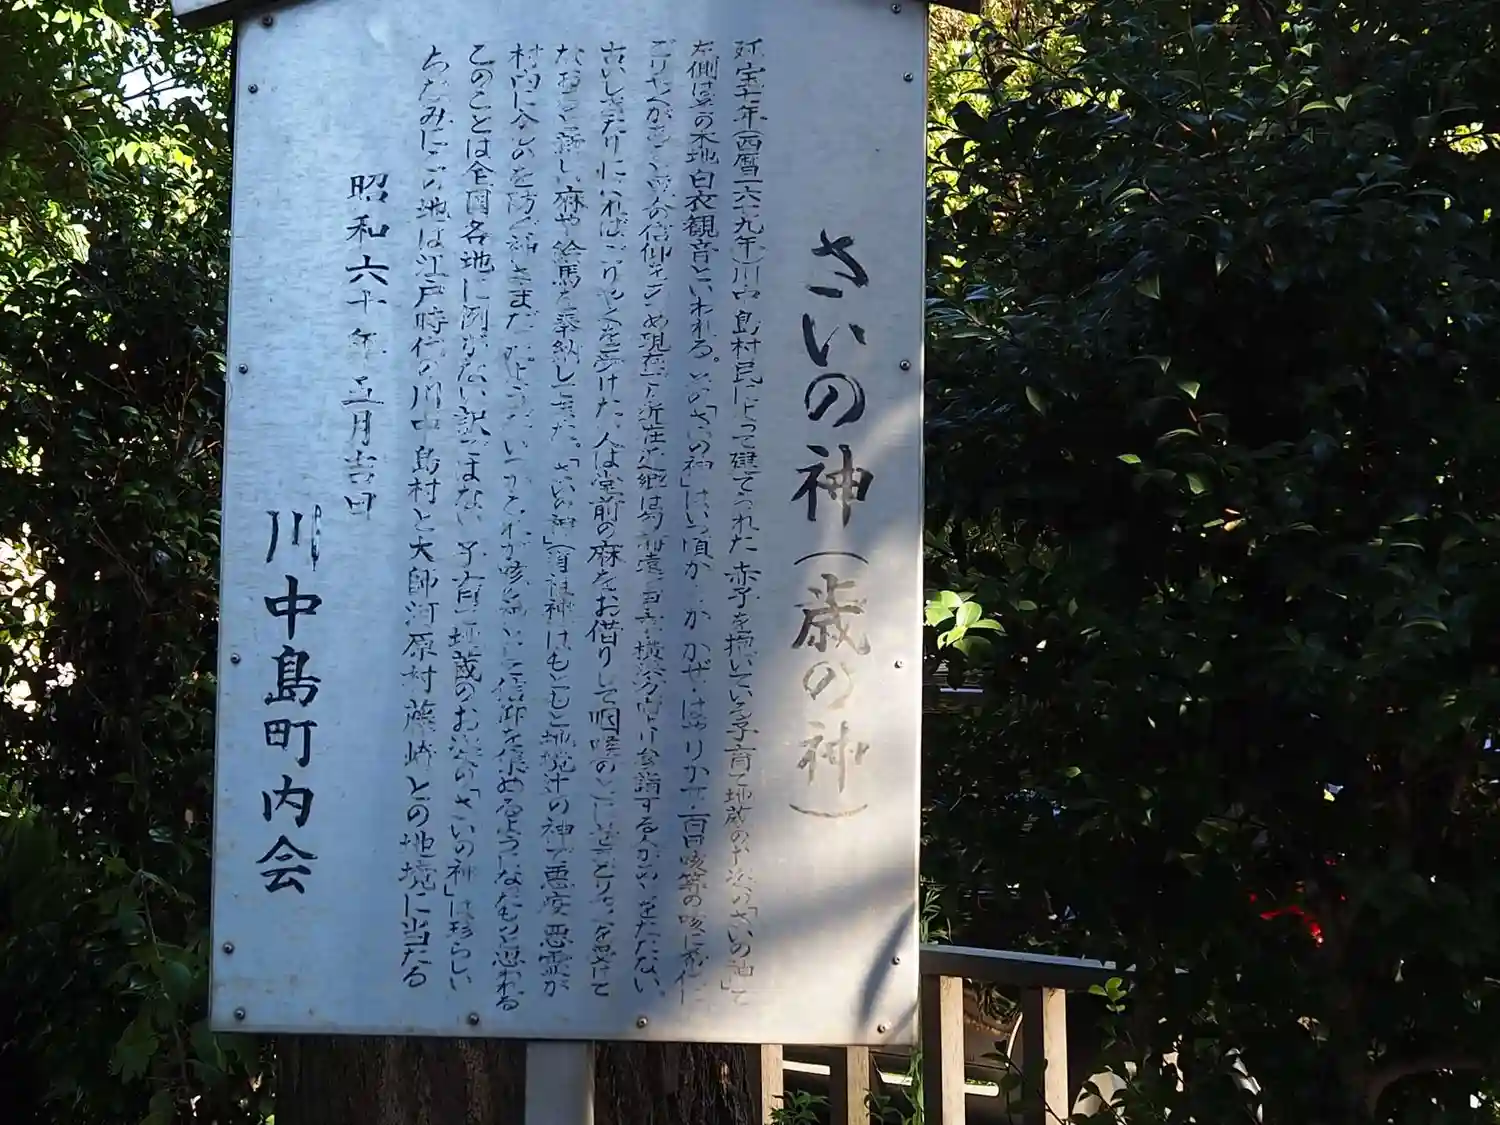 さいの神(歳の神)
延宝七年(西暦一六七九年)川中島村民によって建てられた赤子を抱いている子育て地蔵のお姿の「さいの神」で
左側は の本地白衣観音といわれる。この「さいの神」はいつ頃から かかぜ・はやりかぜ・百日咳等の咳に
ごりやくが の信仰をあつめ現在でも近在近郷は 横浜方面より参詣する人があとをたたない。
古いしきたりにいればごりやくを受けた人は堂前の麻をお借りして咽喉の ごりやくを受けて
なおると新しい麻や絵馬を奉納してきた。「さいの神」(道祖神)はもともと地境辻の神で悪疫悪霊が
村内に入るのを防ぐ神さまだ いつかそれが咳 信仰を集めるようになったものと思われる
このことは全国各地に例がない訳ではないが子育て地蔵のお姿の「さいの神」は珍らしい
ちなみにこの地は江戸時代の川中島村と大師河原村藤崎との地境に当たる
昭和六十年五月吉日
川中島町内会